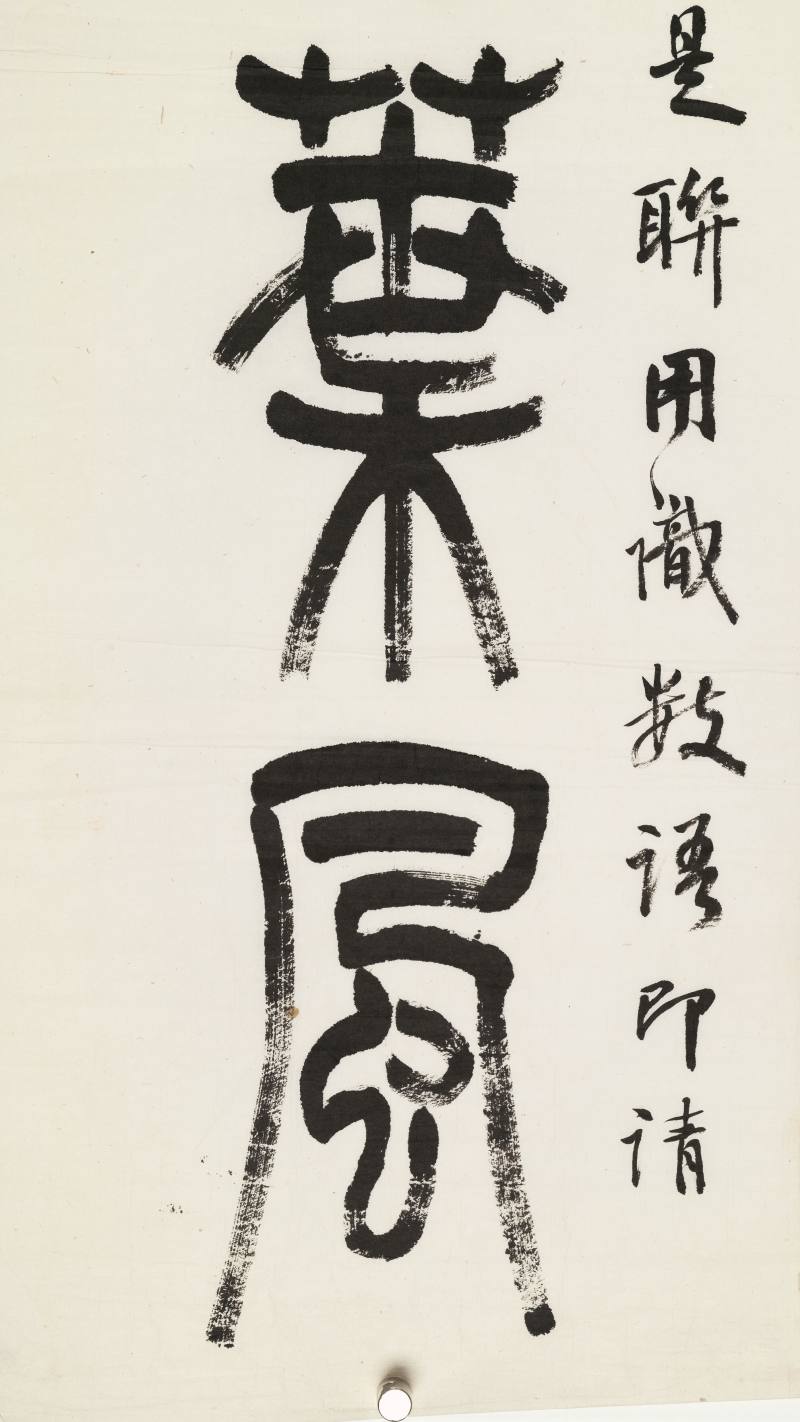 是聯用識數語即請
葉風